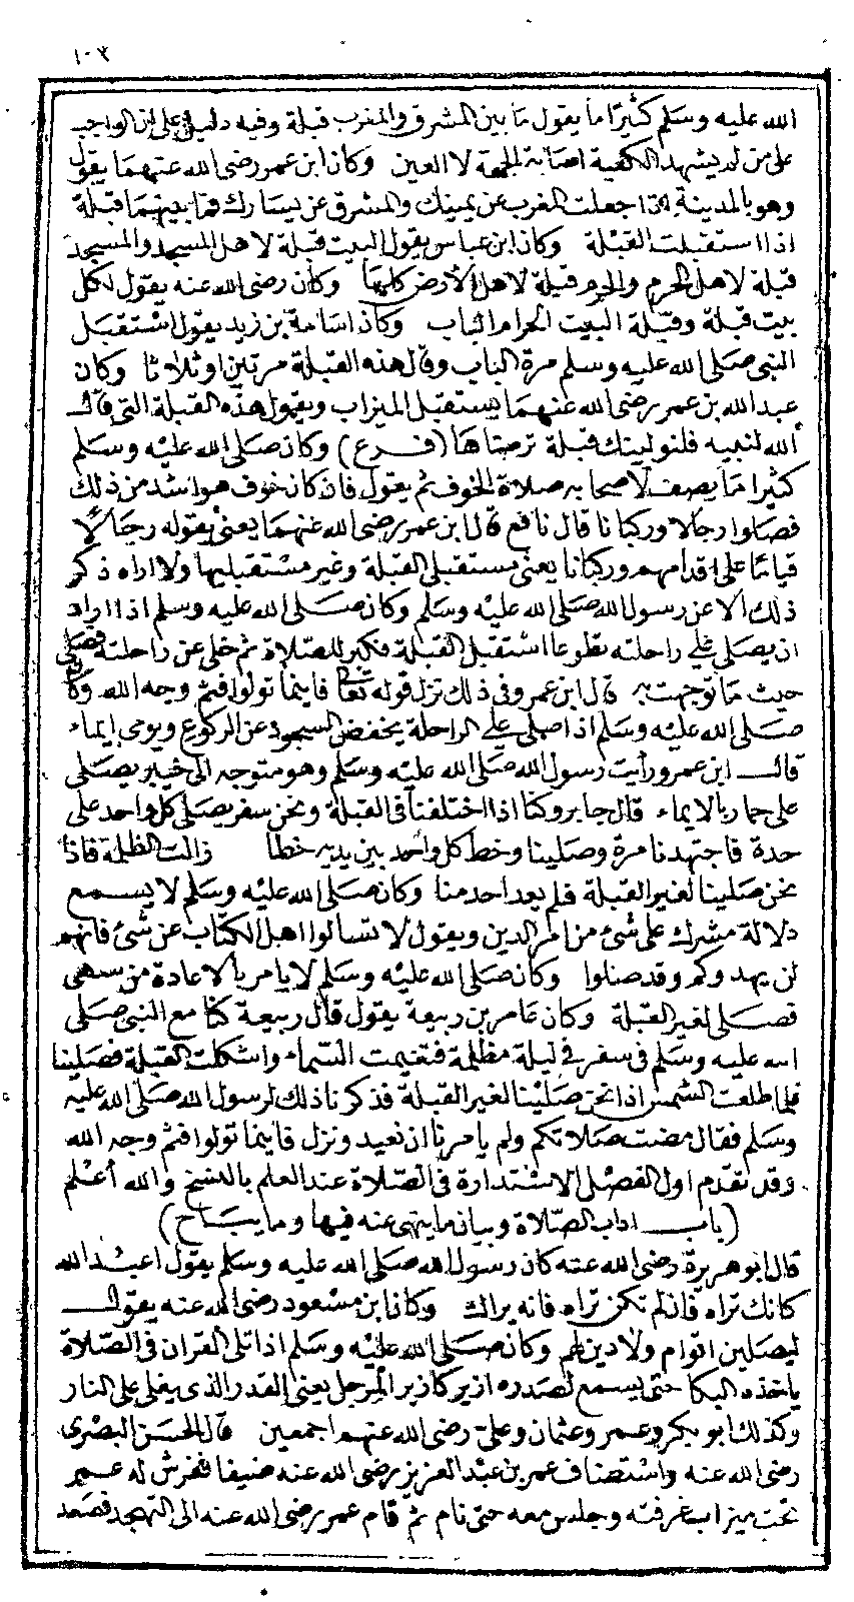 ١٠٣
الله عليه وسلم كثيرا ما يقول ما بين المشرق والمغرب قبلة وفيه دليل على ان الواجب
على من لم يشهد الكعبة اصابة الجهة لا العين وكان ابن عمر رضى الله عنهما يقول
وهو بالمدينة اذا جعلت المغرب عن يمينك والمشرق عن يسارك فما بينهما قبلة
اذا استقبلت القبلة وكان ابن عباس يقول البيت قبلة لاهل المسجد والمسجد
قبلة لاهل الحرم والحرم قبلة لاهل الأرض كلها وكان رضى الله عنه يقول لكل
بيت قبلة وقبلة البيت الحرام الباب وكان اسامة بن زيد يقول استقبل
النبى صلى الله عليه وسلم مرة الباب وقال هذه القبلة مرتين او ثلاثا وكان
عبد الله بن عمر رضى الله عنهما يستقبل الميزاب ويقول هذه القبلة التى قال
الله لنبيه فلنولينك قبلة ترضاها (فرع) وكان صلى الله عليه وسلم
كثيرا ما يصف لاصحابه صلاة الخوف ثم يقول فان كان خوف هو اشد من ذلك
فصلوا رجالا وركبانا قال نافع قال ابن عمر رضى الله عنهما يعنى بقوله رجالا
قياما على اقدامهم وركبانا يعنى مستقبلى القبلة وغير مستقبليها ولا اراه ذكر
ذلك الا عن رسول الله صلى الله عليه وسلم وكان صلى الله عليه وسلم اذا اراد
ان يصلى على راحلته تطوعا استقبل القبلة فكبر للصلاة ثم خلى عن راحلته فصلى
حيث ما توجهت به قال ابن عمر وفى ذلك نزل قوله تعالى فاينما تولوا فثم وجه الله وكان
صلى الله عليه وسلم اذا صلى على الراحلة يخفض السجود عن الركوع ويومى ايماء
قال ابن عمر ورأيت رسول الله صلى الله عليه وسلم وهو متوجه الى خيبر يصلى
على حمار بالايماء قال جابر وكنا اذا اختلفنا فى القبلة ونحن سفر يصلى كل واحد على
حدة فاجتهدنا مرة وصلينا وخط كل واحد بين يديه خطا زالت الظلمة فاذا
نحن صلينا لغير القبلة فلم يعد احد منا وكان صلى الله عليه وسلم لا يسمع
دلالة مشرك على شئ من امر الدين ويقول لا تسالوا اهل الكتاب عن شئ فانهم
لن يهدوكم وقد ضلوا وكان صلى الله عليه وسلم لا يامر بالاعادة من سهى
فصلى لغير القبلة وكان عامر بن ربيعة يقول قال ربيعة كنا مع النبى صلى
الله عليه وسلم فى سفر فى ليلة مظلمة فتغيمت السماء واشكلت القبلة فصلينا
فلما طلعت الشمس اذا نحن صلينا لغير القبلة فذكرنا ذلك لرسول الله صلى الله عليه
وسلم فقال مضت صلاتكم ولم يامرنا ان نعيد ونزل فاينما تولوا فثم وجه الله
وقد تقدم اول الفصل الاستدارة فى الصلاة عند العلم بالنسخ والله أعلم
(باب اداب الصلاة وبيان ما ينهى عنه فيها وما يباح)
قال ابو هريرة رضى الله عنه كان رسول الله صلى الله عليه وسلم يقول اعبد الله
كانك تراه فان لم تكن تراه فانه يراك وكان ابن مسعود رضى الله عنه يقول
ليصلين اقوام ولا دين لهم وكان صلى الله عليه وسلم اذا تلى القران فى الصلاة
ياخذه البكا حتى يسمع لصدره ازيز كازيز المرجل يعنى القدر الذى يغلى على النار
وكذلك ابو بكر وعمر وعثمان وعلى رضى الله عنهم اجمعين قال الحسن البصرى
رضى الله عنه واستضاف عمر بن عبد العزيز رضى الله عنه ضيفا ففرش له عمر
تحت ميزاب غرفته وجلس معه حتى نام ثم قام عمر رضى الله عنه الى التهجد فصعد